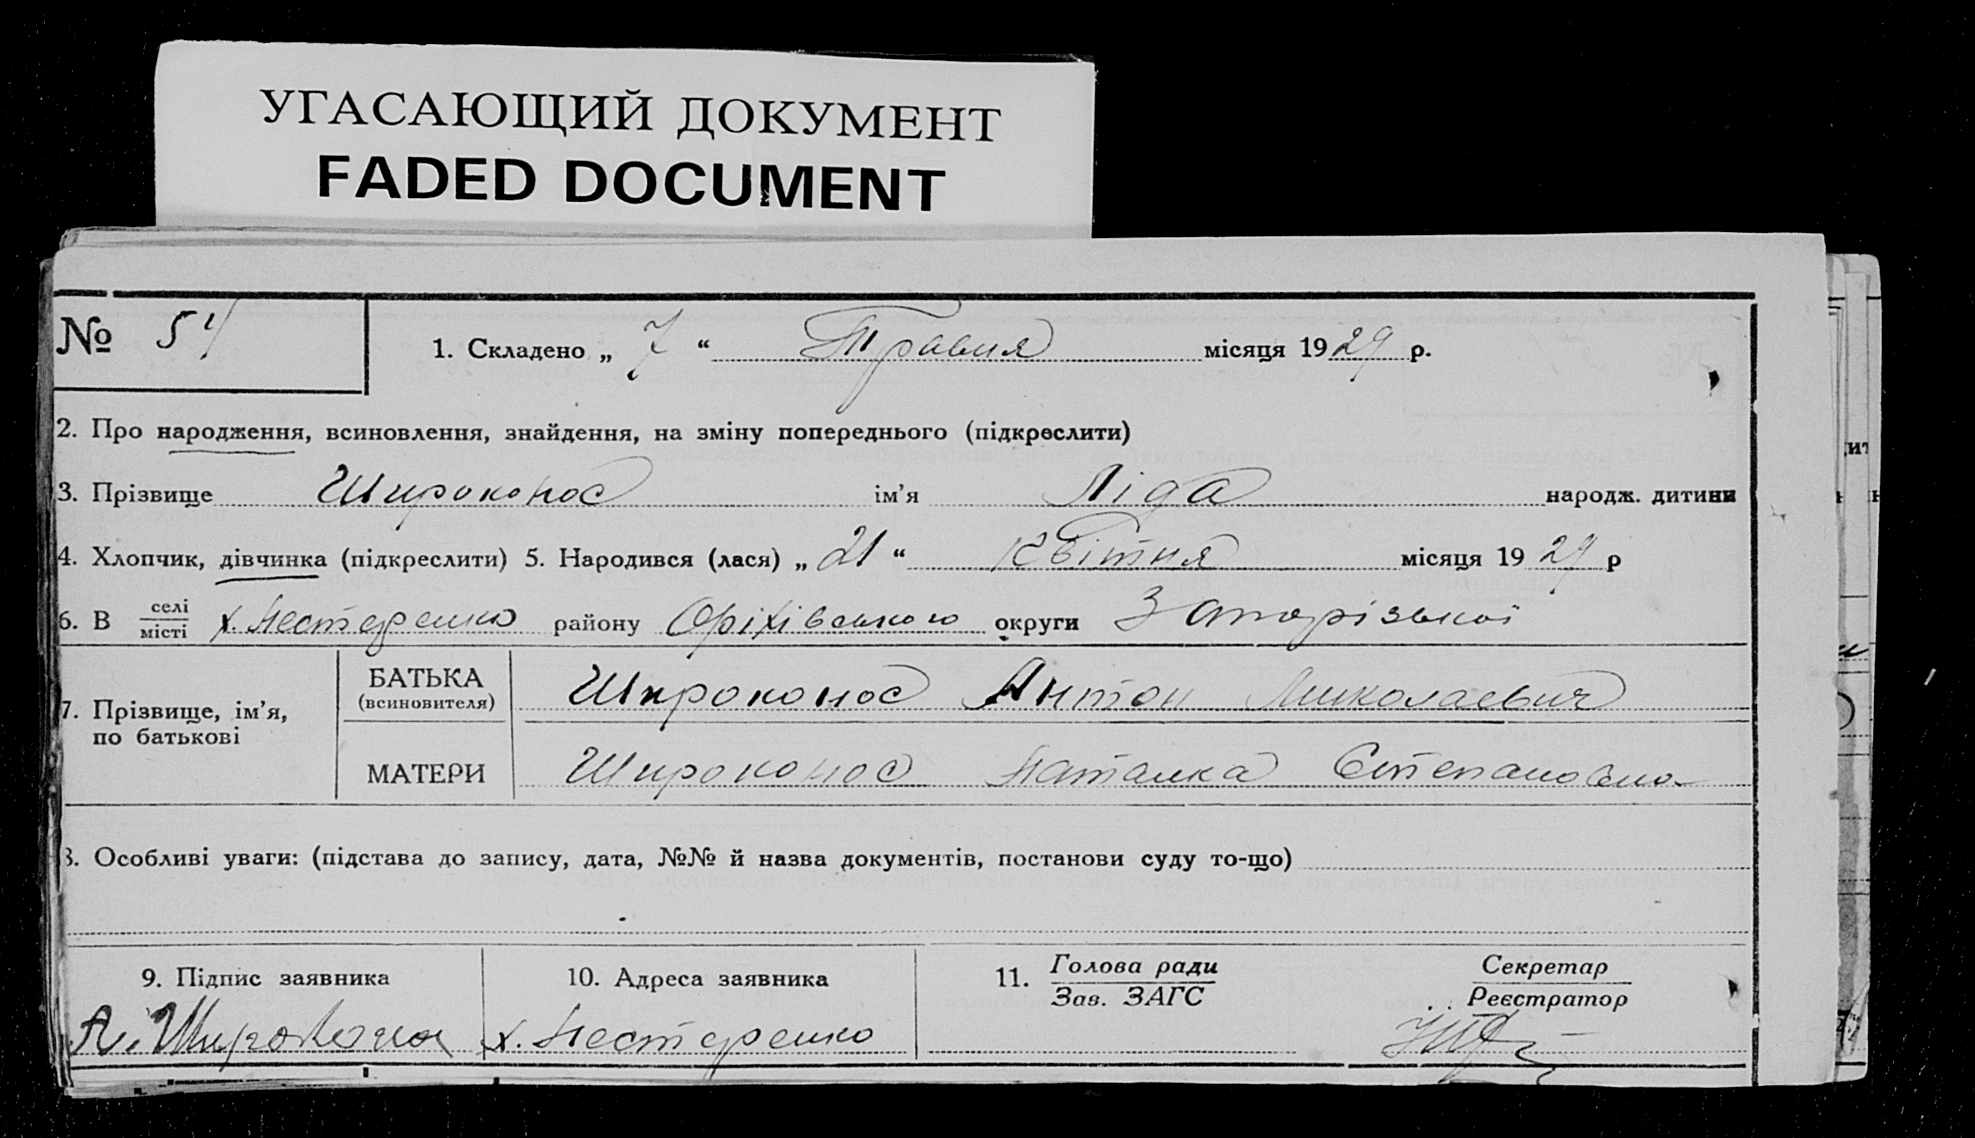 УГАСАЮЩИЙ ДОКУМЕНТ
FADED DOCUMENT
№ 54
1. Складено „ 7 “ Травня місяця 1929 р.
2. Про народження, всиновлення, знайдення, на зміну попереднього (підкреслити)
3. Прізвище Широконос ім’я Ліда народж. дитини
4. Хлопчик, дівчинка (підкреслити) 5. Народився (лася) „ 21 “ Квітня місяця 1929 р
6. В селі/місті х. Нестеренко району Оріхівського округи Запорізької
7. Прізвище, ім’я, по батькові
БАТЬКА (всиновителя) Широконос Антон Миколаевич
МАТЕРИ Широконос Наталка Степановна
8. Особливі уваги: (підстава до запису, дата, №№ й назва документів, постанови суду то-що)
9. Підпис заявника 10. Адреса заявника 11. Голова ради/Зав. ЗАГС Секретар/Реєстратор
А. Широкона х. Нестеренко